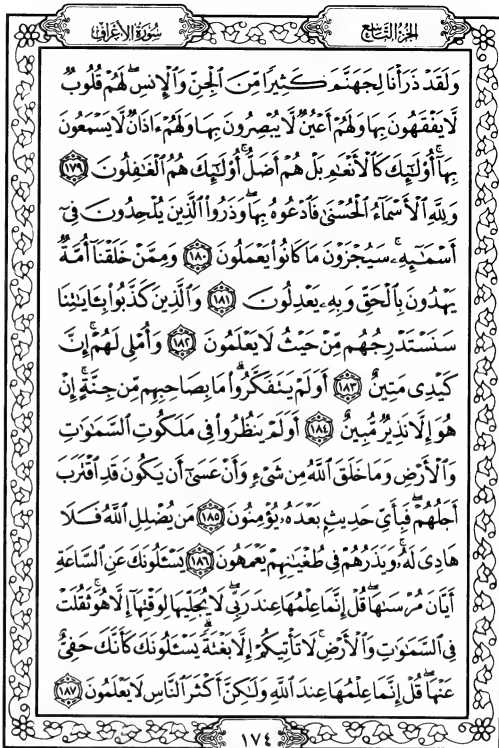 سُورَةُ الأَعْرَافِ الجُزْءُ التَّاسِعُ
وَلَقَدْ ذَرَأْنَا لِجَهَنَّمَ كَثِيرًا مِّنَ ٱلْجِنِّ وَٱلْإِنسِ ۖ لَهُمْ قُلُوبٌ
لَّا يَفْقَهُونَ بِهَا وَلَهُمْ أَعْيُنٌ لَّا يُبْصِرُونَ بِهَا وَلَهُمْ ءَاذَانٌ لَّا يَسْمَعُونَ
بِهَآ ۚ أُو۟لَـٰٓئِكَ كَٱلْأَنْعَـٰمِ بَلْ هُمْ أَضَلُّ ۚ أُو۟لَـٰٓئِكَ هُمُ ٱلْغَـٰفِلُونَ ١٧٩
وَلِلَّهِ ٱلْأَسْمَآءُ ٱلْحُسْنَىٰ فَٱدْعُوهُ بِهَا ۖ وَذَرُوا۟ ٱلَّذِينَ يُلْحِدُونَ فِىٓ
أَسْمَـٰٓئِهِۦ ۚ سَيُجْزَوْنَ مَا كَانُوا۟ يَعْمَلُونَ ١٨٠ وَمِمَّنْ خَلَقْنَآ أُمَّةٌ
يَهْدُونَ بِٱلْحَقِّ وَبِهِۦ يَعْدِلُونَ ١٨١ وَٱلَّذِينَ كَذَّبُوا۟ بِـَٔايَـٰتِنَا
سَنَسْتَدْرِجُهُم مِّنْ حَيْثُ لَا يَعْلَمُونَ ١٨٢ وَأُمْلِى لَهُمْ ۚ إِنَّ
كَيْدِى مَتِينٌ ١٨٣ أَوَلَمْ يَتَفَكَّرُوا۟ ۗ مَا بِصَاحِبِهِم مِّن جِنَّةٍ ۚ إِنْ
هُوَ إِلَّا نَذِيرٌ مُّبِينٌ ١٨٤ أَوَلَمْ يَنظُرُوا۟ فِى مَلَكُوتِ ٱلسَّمَـٰوَٰتِ
وَٱلْأَرْضِ وَمَا خَلَقَ ٱللَّهُ مِن شَىْءٍ وَأَنْ عَسَىٰٓ أَن يَكُونَ قَدِ ٱقْتَرَبَ
أَجَلُهُمْ ۖ فَبِأَىِّ حَدِيثٍۭ بَعْدَهُۥ يُؤْمِنُونَ ١٨٥ مَن يُضْلِلِ ٱللَّهُ فَلَا
هَادِىَ لَهُۥ ۚ وَيَذَرُهُمْ فِى طُغْيَـٰنِهِمْ يَعْمَهُونَ ١٨٦ يَسْـَٔلُونَكَ عَنِ ٱلسَّاعَةِ
أَيَّانَ مُرْسَىٰهَا ۖ قُلْ إِنَّمَا عِلْمُهَا عِندَ رَبِّى ۖ لَا يُجَلِّيهَا لِوَقْتِهَآ إِلَّا هُوَ ۚ ثَقُلَتْ
فِى ٱلسَّمَـٰوَٰتِ وَٱلْأَرْضِ ۚ لَا تَأْتِيكُمْ إِلَّا بَغْتَةً ۗ يَسْـَٔلُونَكَ كَأَنَّكَ حَفِىٌّ
عَنْهَا ۖ قُلْ إِنَّمَا عِلْمُهَا عِندَ ٱللَّهِ وَلَـٰكِنَّ أَكْثَرَ ٱلنَّاسِ لَا يَعْلَمُونَ ١٨٧
١٧٤